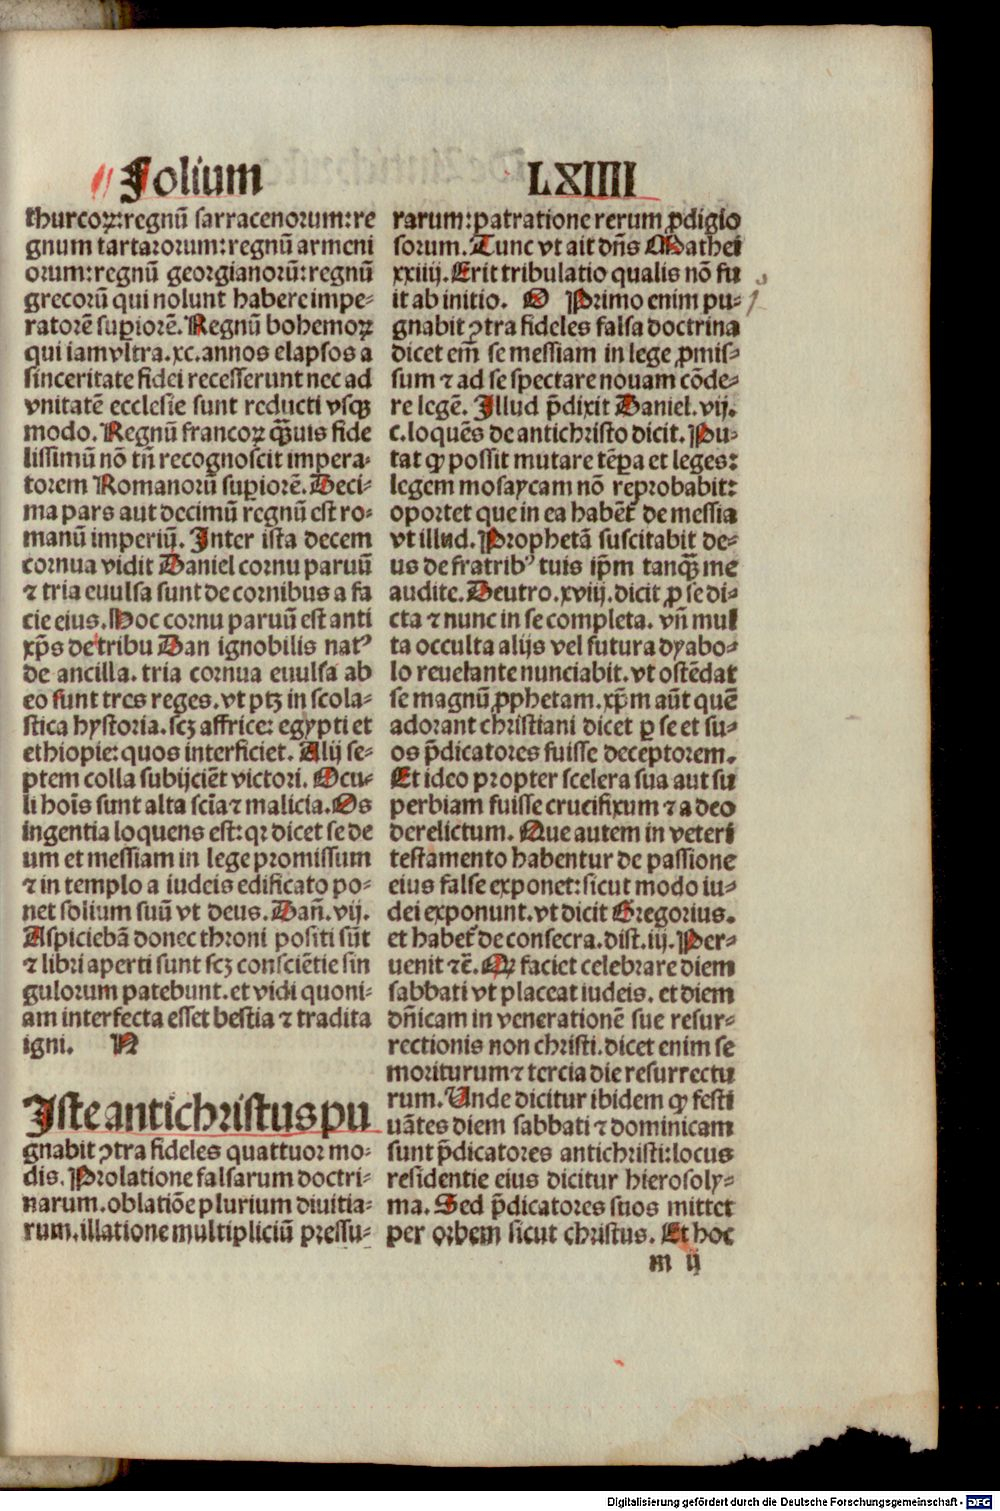 Folium LXIIII
thurcoꝝ:regnū sarracenorum:re
gnum tartarorum:regnū armeni
orum:regnū georgianorū:regnū
grecorū qui nolunt habere impe-
ratorē supiorē. Regnū bohemoꝝ
qui iam vltra .xc. annos elapsos a
sinceritate fidei recesserunt nec ad
vnitatē ecclesie sunt reducti vsqꝫ
modo. Regnū francoꝝ qꝫuis fide
lissimū nō tn̄ recognoscit impera-
torem Romanorū supiorē. Deci-
ma pars aut decimū regnū est ro-
manū imperiū. Inter ista decem
cornua vidit Daniel cornu paruū
⁊ tria euulsa sunt de cornibus a fa
cie eius. Hoc cornu paruū est anti
xp̄s de tribu Dan ignobilis natꝰ
de ancilla. tria cornua euulsa ab
eo sunt tres reges. vt ptꝫ in scola-
stica hystoria. scꝫ affrice: egypti et
ethiopie: quos interficiet. Alij se-
ptem colla subijciēt victori. Ocu-
li hoīs sunt alta scīa ⁊ malicia. Os
ingentia loquens est: qꝛ dicet se de
um et messiam in lege promissum
⁊ in templo a iudeis edificato po-
net solium suū vt deus. Dan̄. vij.
Aspiciebā donec throni positi sūt
⁊ libri aperti sunt scꝫ consciētie sin
gulorum patebunt. et vidi quoni-
am interfecta esset bestia ⁊ tradita
igni. N
Iste antichristus pu
gnabit ꝯtra fideles quattuor mo-
dis. Prolatione falsarum doctri-
narum. oblatiōe plurium diuitia-
rum. illatione multipliciū pressu-
rarum: patratione rerum ꝓdigio
sorum. Tunc vt ait dn̄s Mathei
xxiiij. Erit tribulatio qualis nō fu
it ab initio. O Primo enim pu-
gnabit ꝯtra fideles falsa doctrina
dicet em̄ se messiam in lege ꝓmis-
sum ⁊ ad se spectare nouam cōde-
re legē. Illud p̄dixit Daniel. vij.
c. loquēs de antichristo dicit. Pu-
tat ꝙ possit mutare tēpa et leges:
legem mosaycam nō reprobabit:
oportet que in ea habēt̄ de messia
vt illud. Prophetā suscitabit de-
us de fratribꝰ tuis ip̄m tanqꝫ me
audite. Deutro. xviij. dicit ꝓ se di-
cta ⁊ nunc in se completa. vn̄ mul
ta occulta alijs vel futura dyabo-
lo reuelante nunciabit. vt ostēdat
se magnū ꝓphetam. xp̄m aūt quē
adorant christiani dicet ꝑ se et su-
os p̄dicatores fuisse deceptorem.
Et ideo propter scelera sua aut su
perbiam fuisse crucifixum ⁊ a deo
derelictum. Que autem in veteri
testamento habentur de passione
eius false exponet: sicut modo iu-
dei exponunt. vt dicit Gregorius.
et habet̄ de consecra. dist. iij. Per-
uenit ⁊c̄. Q faciet celebrare diem
sabbati vt placeat iudeis. et diem
dn̄icam in venerationē sue resur-
rectionis non christi. dicet enim se
moriturum ⁊ tercia die resurrectu
rum. Unde dicitur ibidem ꝙ festi
uātes diem sabbati ⁊ dominicam
sunt p̄dicatores antichristi: locus
residentie eius dicitur hierosoly-
ma. Sed p̄dicatores suos mittet
per orbem sicut christus. Et hoc
m ij
Digitalisierung gefördert durch die Deutsche Forschungsgemeinschaft - DFG